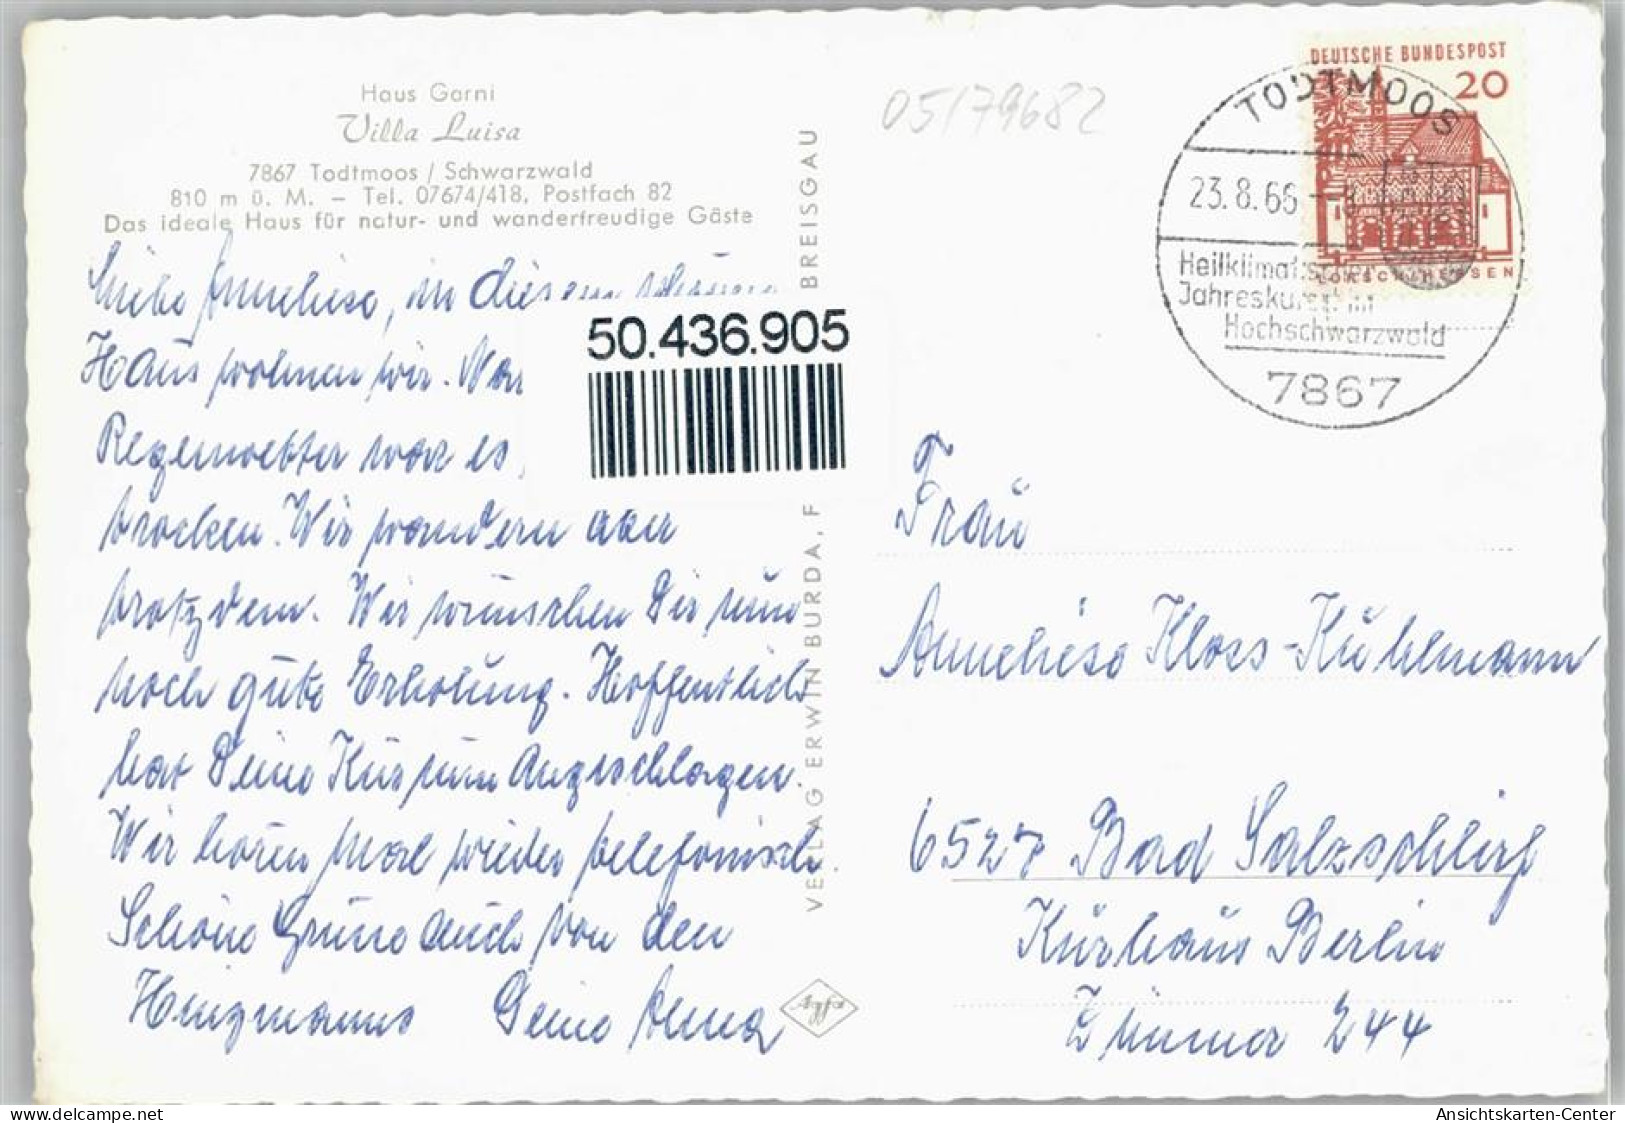 Haus Garni
Villa Luisa
7867 Todtmoos / Schwarzwald
810 m ü. M. – Tel. 07674/418, Postfach 82
Das ideale Haus für natur- und wanderfreudige Gäste
Liebe Anneliese, in diesem schönen
Haus wohnen wir. Vor
Regenwetter war es
trocken. Wir wandern aber
trotzdem. Wir wünschen Dir nun
noch gute Erholung. Hoffentlich
hat Deine Kur nun angeschlagen.
Wir hören mal wieder telefonisch.
Schöne Grüße auch von den
Deine Anna
50.436.905
VERLAG ERWIN BURDA, F
BREISGAU
Agfa
05179682
DEUTSCHE BUNDESPOST
20
LORSCH/HESSEN
TODTMOOS
23.8.66
Heilklimat.
Jahreskurort im
Hochschwarzwald
7867
Frau
Anneliese Kloss-Kühlmann
6527 Bad Salzschlirf
Kurhaus Berlin
Zimmer 244
www.delcampe.net
Ansichtskarten-Center